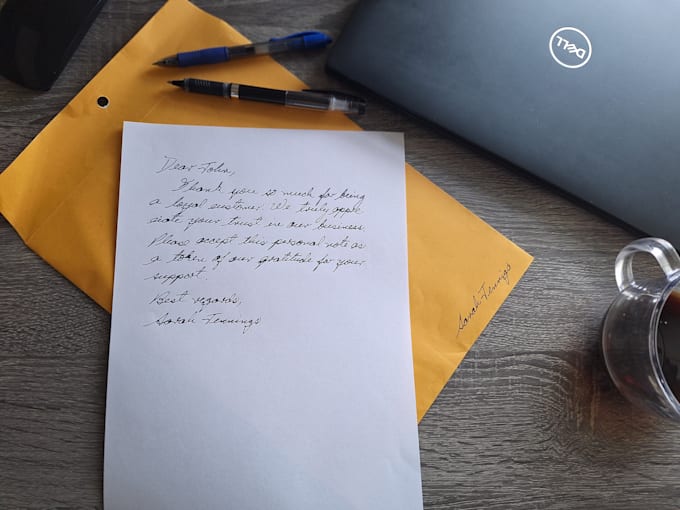 DELL
Dear John,
Thank you so much for being
a loyal customer. We truly appre
ciate your trust in our business.
Please accept this personal note as
a token of our gratitude for your
support.
Best regards,
Sarah Jennings
Sarah Jennings